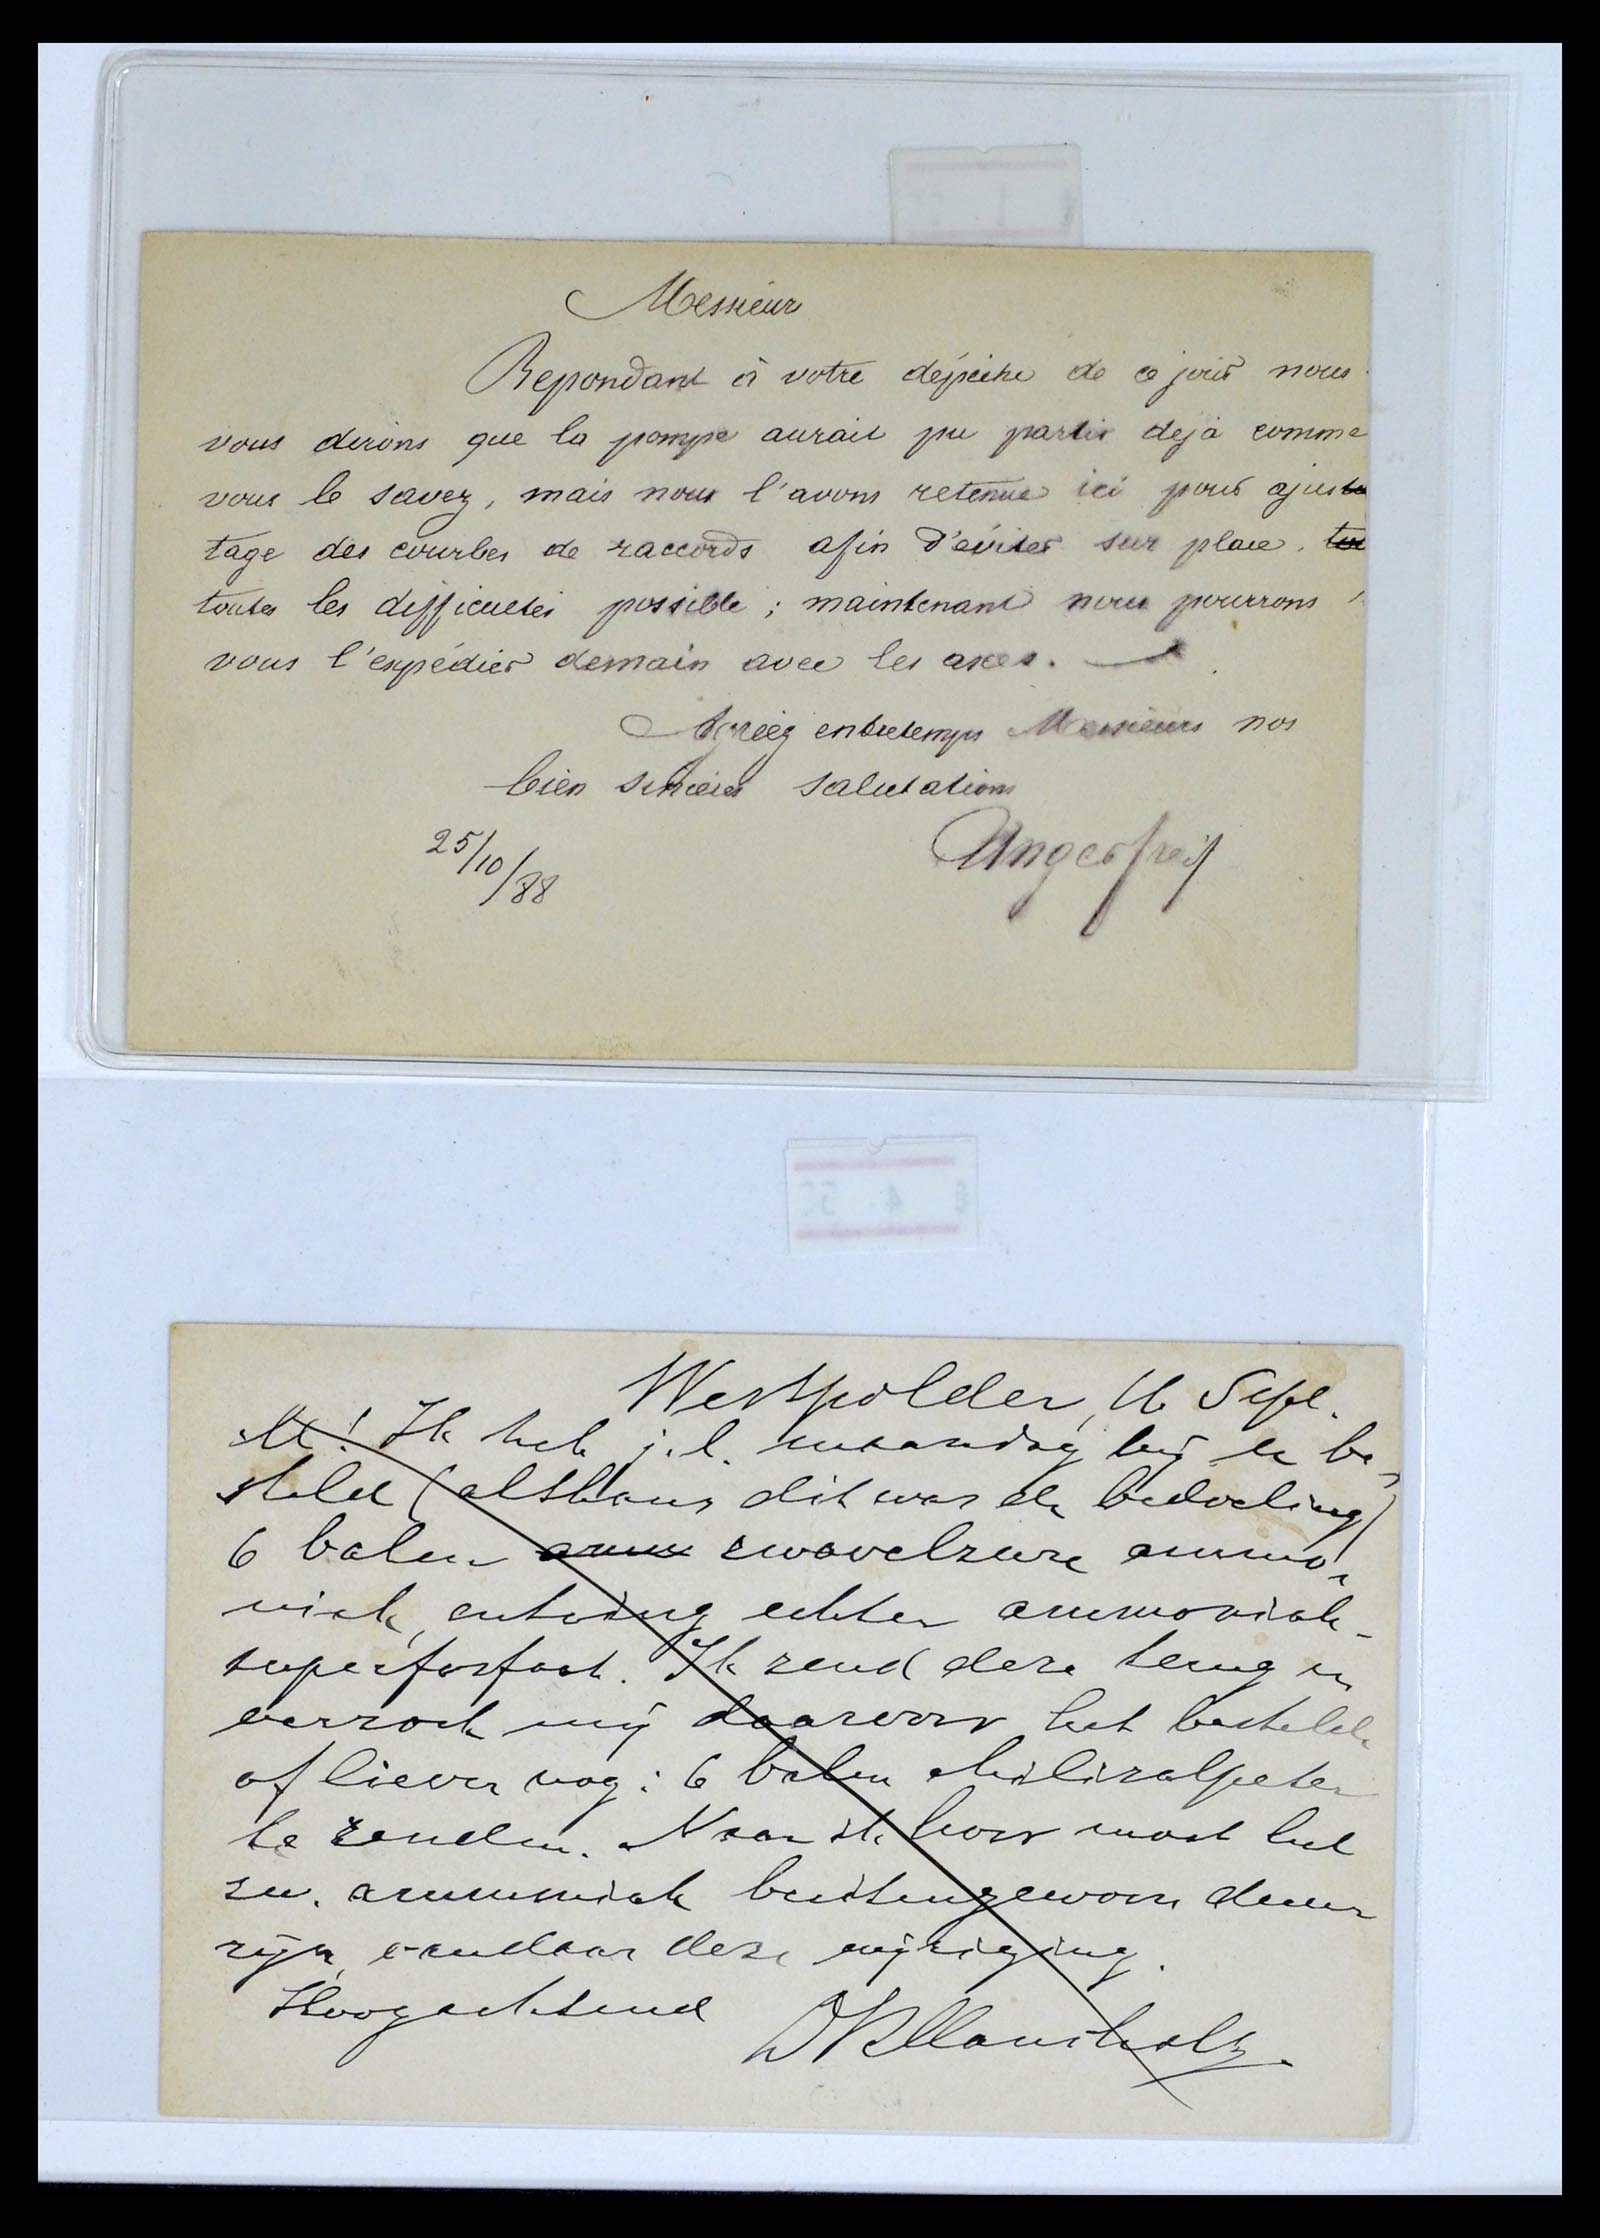 Messieurs
Repondant à votre dépêche de ce jour nous
vous dirons que la pompe aurait pu partir deja comme
vous le savez, mais nous l'avons retenue ici pour ajus
tage des courbes de raccords afin d'éviter sur place,
toutes les difficultés possible ; maintenant nous pourrons
vous l'expédier demain avec les axes.
Agréez entretemps Messieurs nos
bien sincères salutations
25/10/88
Westpolder, 16 Sept.
M! Ik heb j.l. maandag bij u be-
steld (althans dit was de bedoeling)
6 balen zwavelzure ammo-
niak, ontving echter ammoniak-
superfosfaat. Ik zend deze terug en
verzoek mij daarvoor het bestelde
of liever nog: 6 balen chilisalpeter
te zenden. Naar ik hoor moet het
zw. ammoniak buitengewoon duur
zijn, vandaar deze wijziging.
Hoogachtend